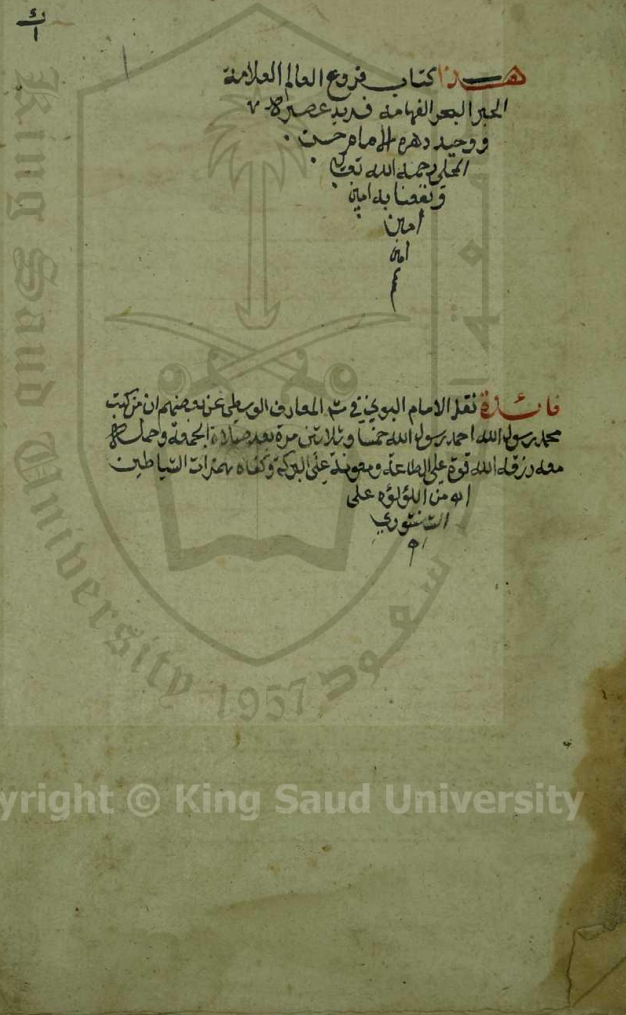 هذا كتاب فروع العالم العلامة
الحبر البحر الفهامة فريد عصره
ووحيد دهره الامام حسن
المحلي رحمه الله تعالى
ونفعنا به امين
امين
امين
فائدة نقل الامام البوني في المعارف الوسطى عن بعضهم ان من كتب
محمد رسول الله احمد رسول الله خمسا وثلاثين مرة بعد صلاة الجمعة وحمله
معه رزقه الله قوة على الطاعة ومعونة على البركة وكفاه همزات الشياطين
اه من اللؤلؤه على
King Saud University 1957
سعود
yright © King Saud University